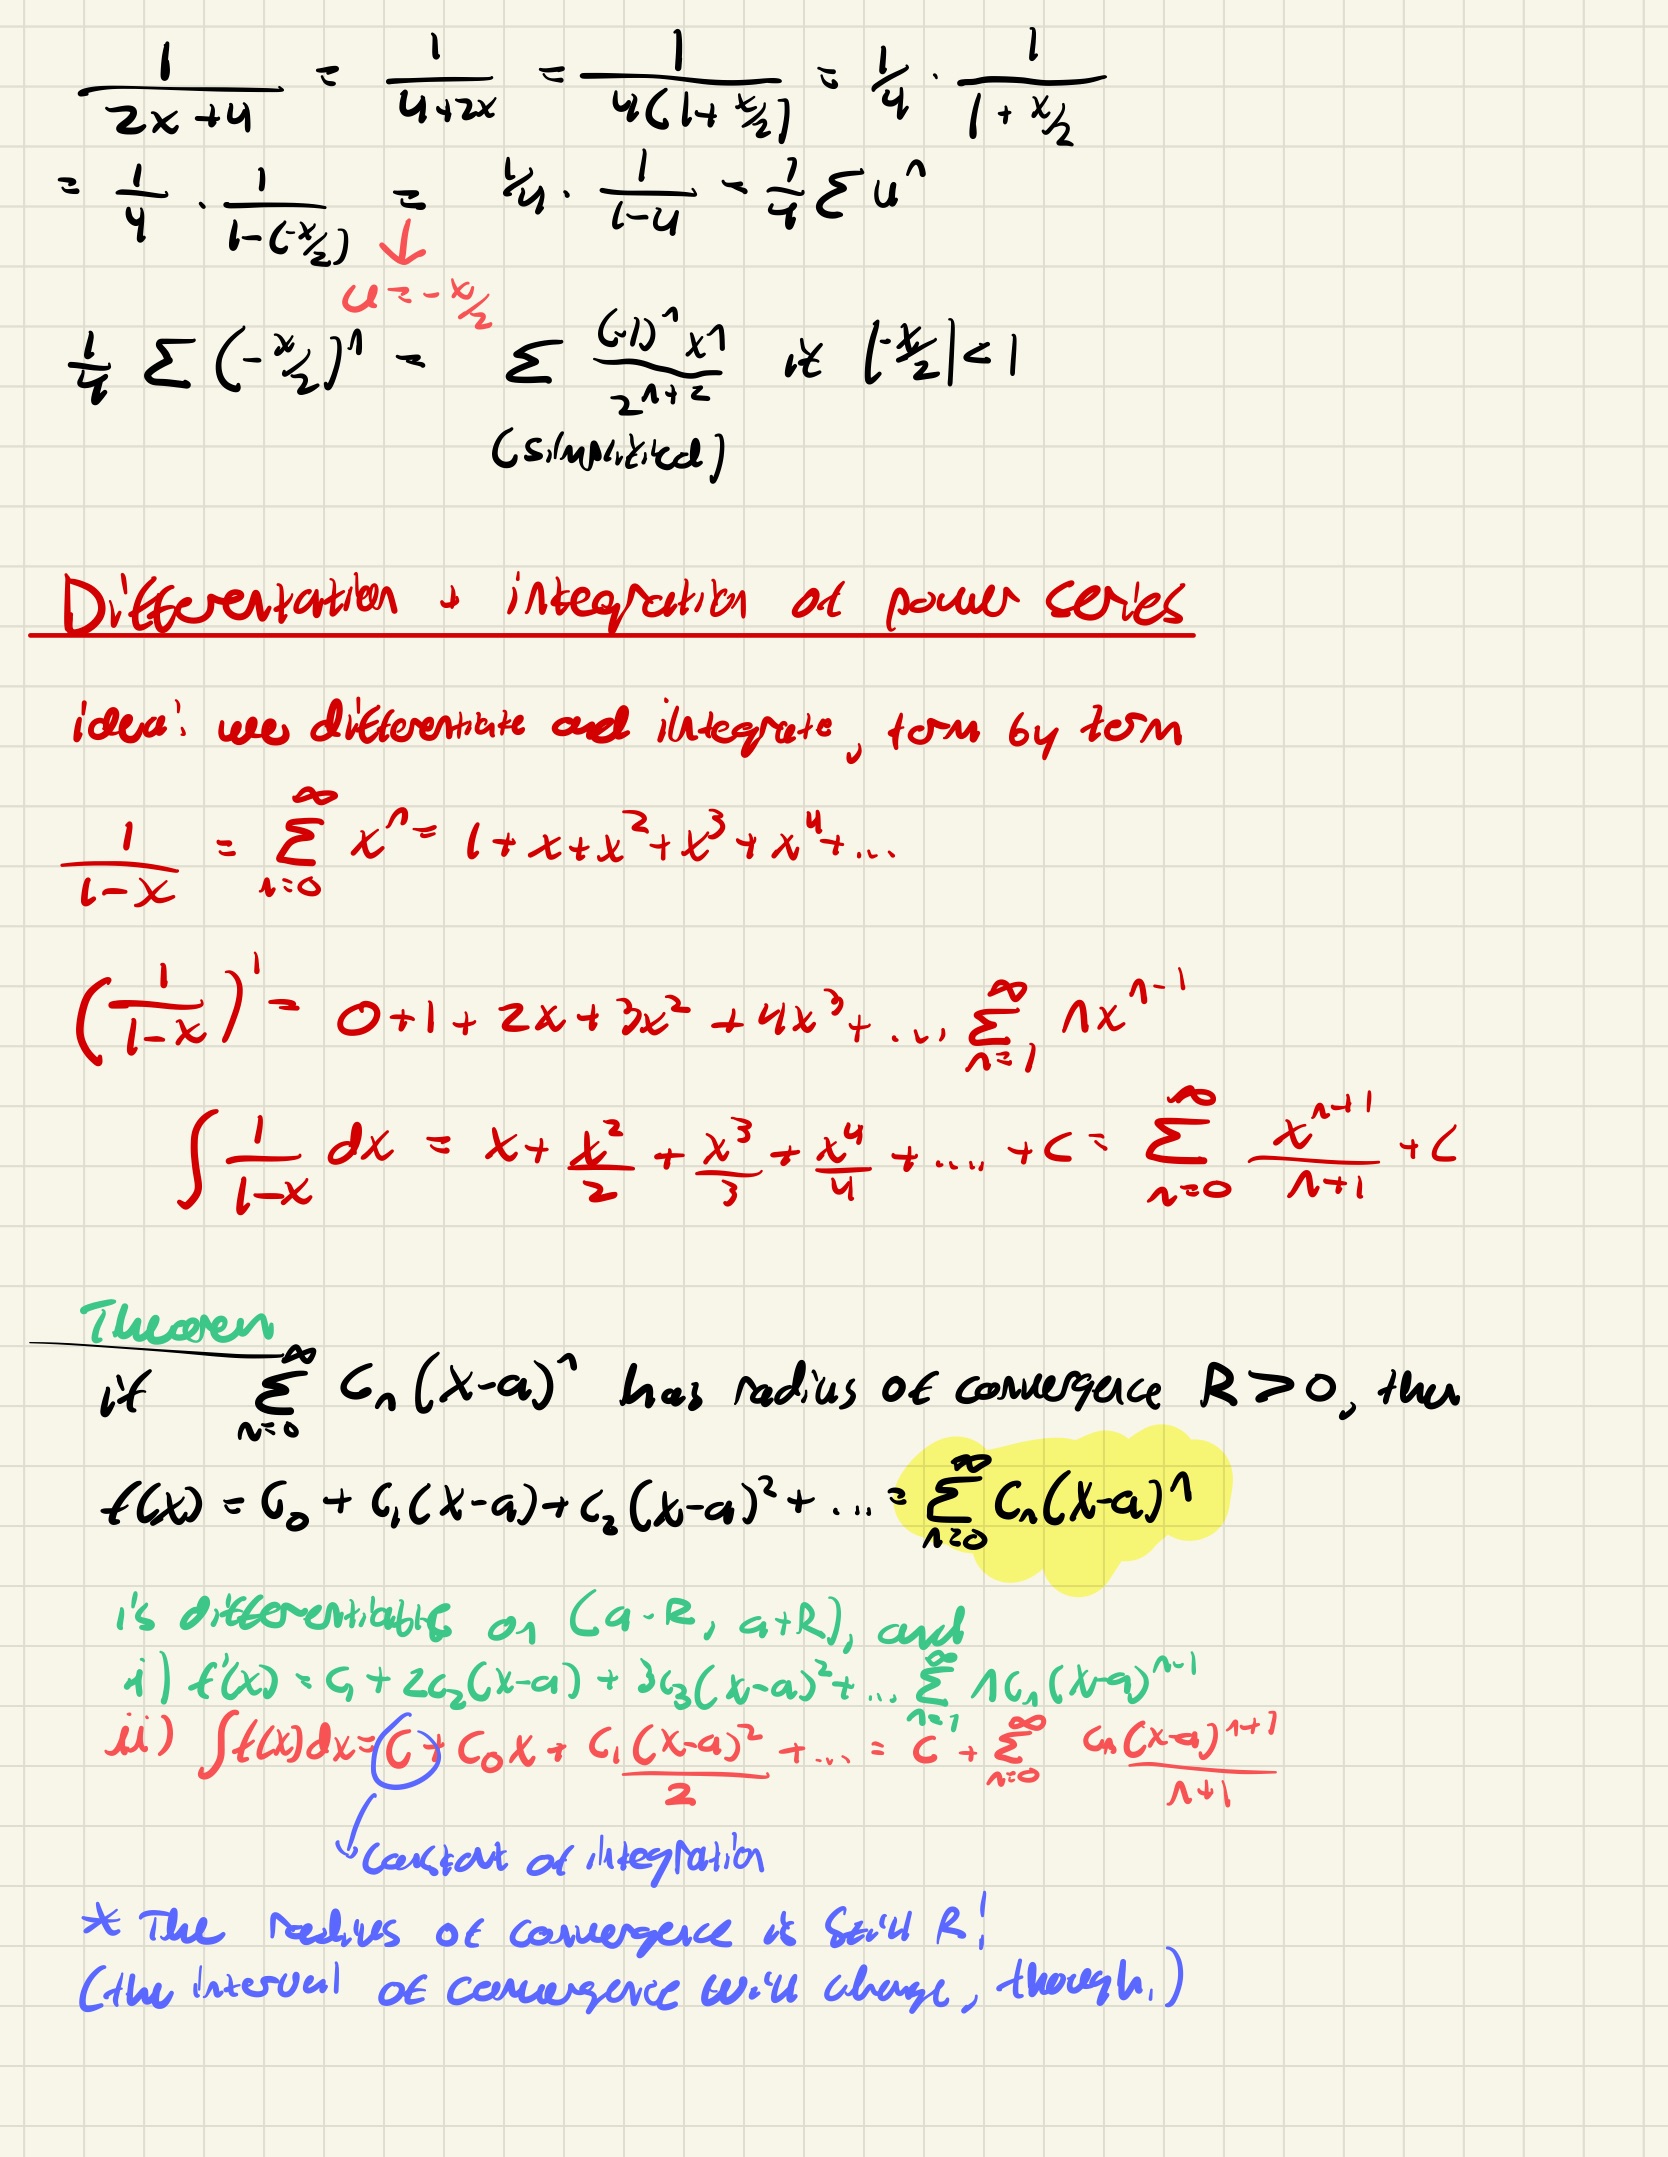 1/(2x+4) = 1/(4+2x) = 1/(4(1+x/2)) = 1/4 · 1/(1+x/2)
= 1/4 · 1/(1-(-x/2)) = 1/4 · 1/(1-u) = 1/4 Σ u^n
↓
u = -x/2
1/4 Σ (-x/2)^n = Σ (-1)^n x^n / 2^(n+2) if |-x/2| < 1
(simplified)
Differentation + integration of power series
idea: we differentiate and integrate, term by term
1/(1-x) = Σ_{n=0}^{∞} x^n = 1+x+x^2+x^3+x^4+...
(1/(1-x))' = 0+1+2x+3x^2+4x^3+... Σ_{n=1}^{∞} nx^(n-1)
∫ 1/(1-x) dx = x + x^2/2 + x^3/3 + x^4/4 + .... + C = Σ_{n=0}^{∞} x^(n+1)/(n+1) + C
Theorem
if Σ_{n=0}^{∞} C_n(x-a)^n has radius of convergence R>0, then
f(x) = C_0 + C_1(x-a) + C_2(x-a)^2 + ... = Σ_{n=0}^{∞} C_n(x-a)^n
is differentiable on (a-R, a+R), and
i) f'(x) = C_1 + 2C_2(x-a) + 3C_3(x-a)^2 + ... Σ_{n=1}^{∞} nC_n(x-a)^(n-1)
ii) ∫f(x)dx = C + C_0x + C_1(x-a)^2/2 + ... = C + Σ_{n=0}^{∞} C_n(x-a)^(n+1)/(n+1)
constant of integration
* The radius of convergence is still R!
(the interval of convergence will change, though.)